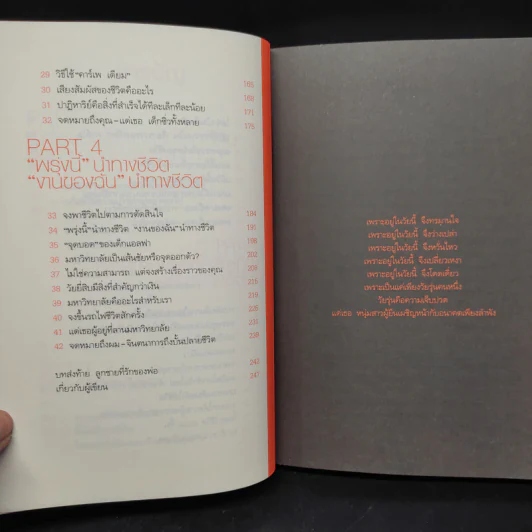 29 วิธีใช้ "คาร์เพ เดียม"
30 เสียงสัมผัสของชีวิตคืออะไร 165
31 ปาฏิหาริย์คือสิ่งที่สำเร็จได้ทีละเล็กทีละน้อย 168
32 จดหมายถึงคุณ-แด่เธอ เด็กซิ่วทั้งหลาย 171
175
PART 4
"พรุ่งนี้" นำทางชีวิต
"งานของฉัน" นำทางชีวิต
33 จงพาชีวิตไปตามการตัดสินใจ
34 "พรุ่งนี้" นำทางชีวิต "งานของฉัน" นำทางชีวิต
35 "จุดบอด" ของเด็กแอลฟา
36 มหาวิทยาลัยเป็นเส้นชัยหรือจุดออกตัว?
37 ไม่ใช่ความสามารถ แต่จงสร้างเรื่องราวของคุณ
38 วัยยี่สิบมีสิ่งที่สำคัญกว่าเงิน
39 มหาวิทยาลัยคืออะไรสำหรับเรา
40 จงขึ้นรถไฟชีวิตสักครั้ง
41 แด่เธอผู้อยู่ที่ลานมหาวิทยาลัย
42 จดหมายถึงผม-จินตนาการถึงบั้นปลายชีวิต
บทส่งท้าย ลูกชายที่รักของพ่อ 243
เกี่ยวกับผู้เขียน 247
เพราะอยู่ในวัยนี้ จึงทรมานใจ
เพราะอยู่ในวัยนี้ จึงว่างเปล่า
เพราะอยู่ในวัยนี้ จึงหวั่นไหว
เพราะอยู่ในวัยนี้ จึงเปลี่ยวเหงา
เพราะอยู่ในวัยนี้ จึงโดดเดี่ยว
เพราะเป็นแค่เพียงวัยรุ่นคนหนึ่ง
วัยรุ่นคือความเจ็บปวด
แด่เธอ หนุ่มสาวผู้ยืนเผชิญหน้ากับอนาคตเพียงลำพัง